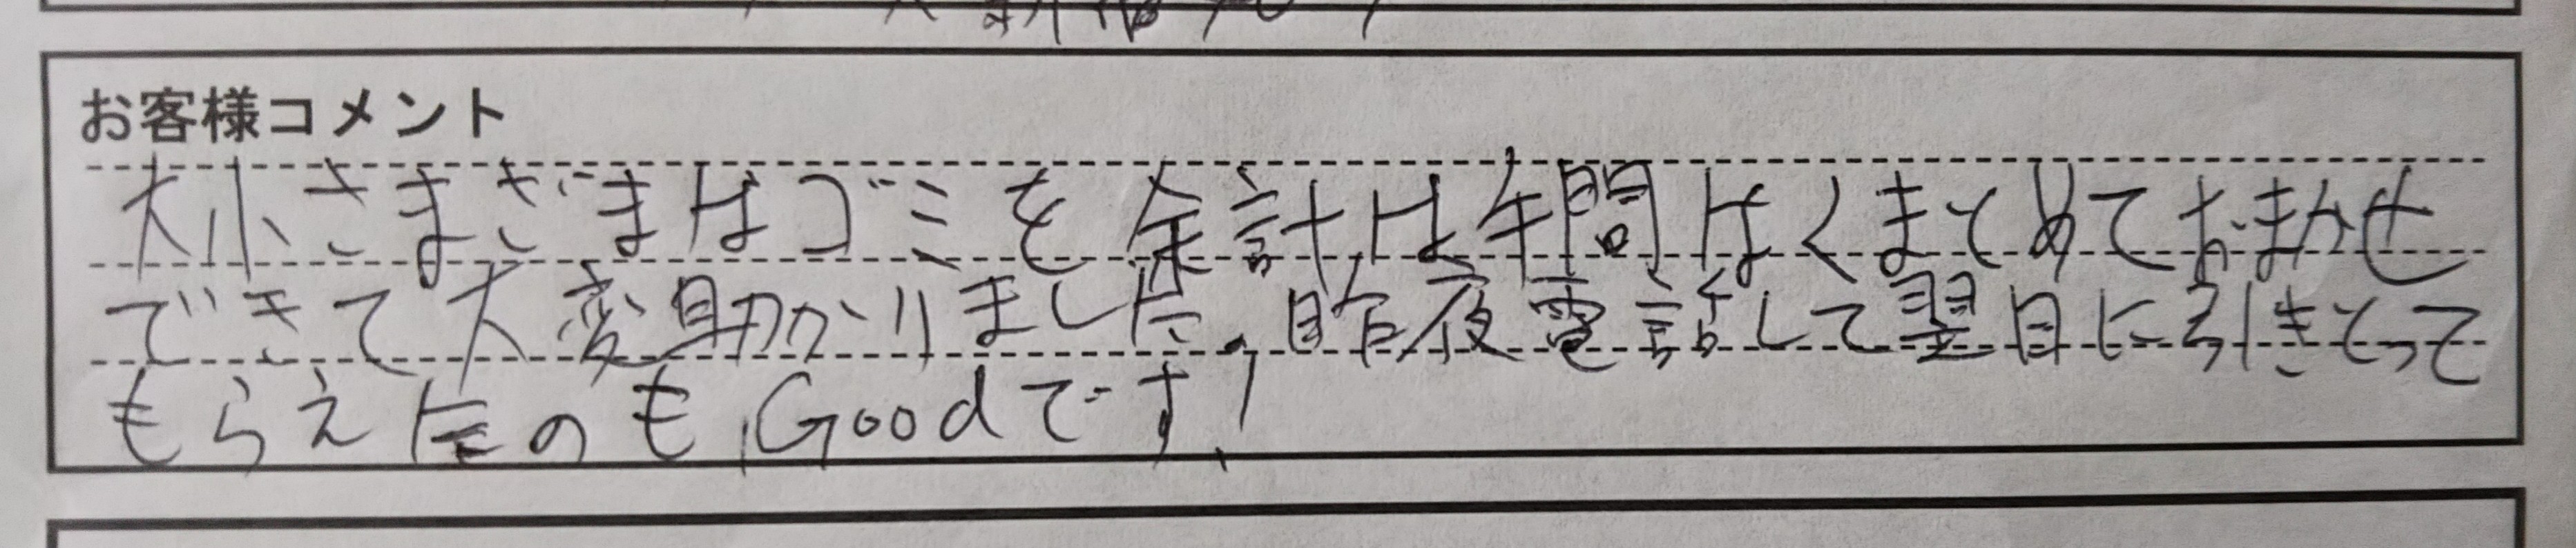 お客様コメント
大小さまざまなゴミを余計な手間なくまとめておまかせ
できて大変助かりました。昨夜電話して翌日に引きとって
もらえたのも、Goodです!